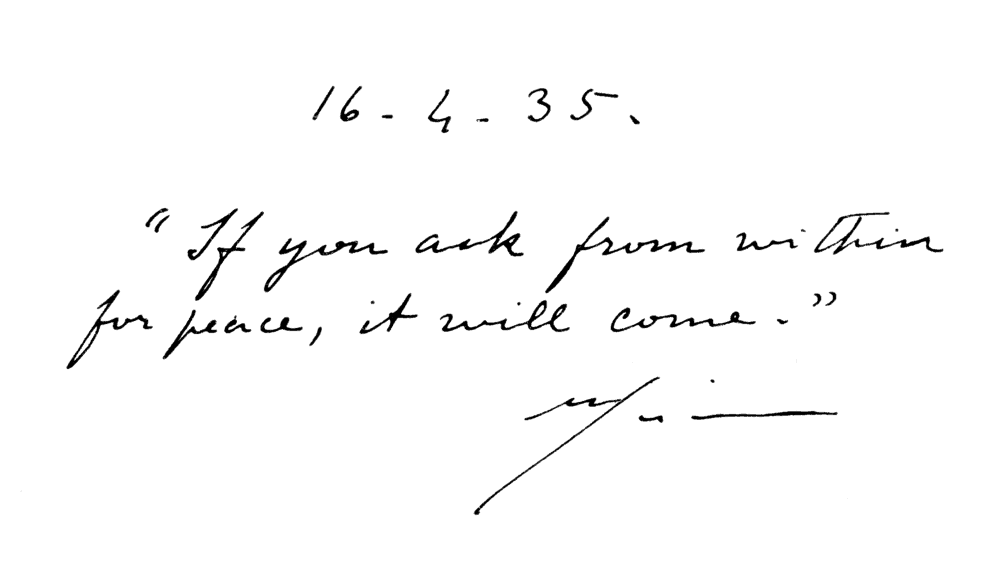 16-4-35.
"If you ask from within
for peace, it will come."